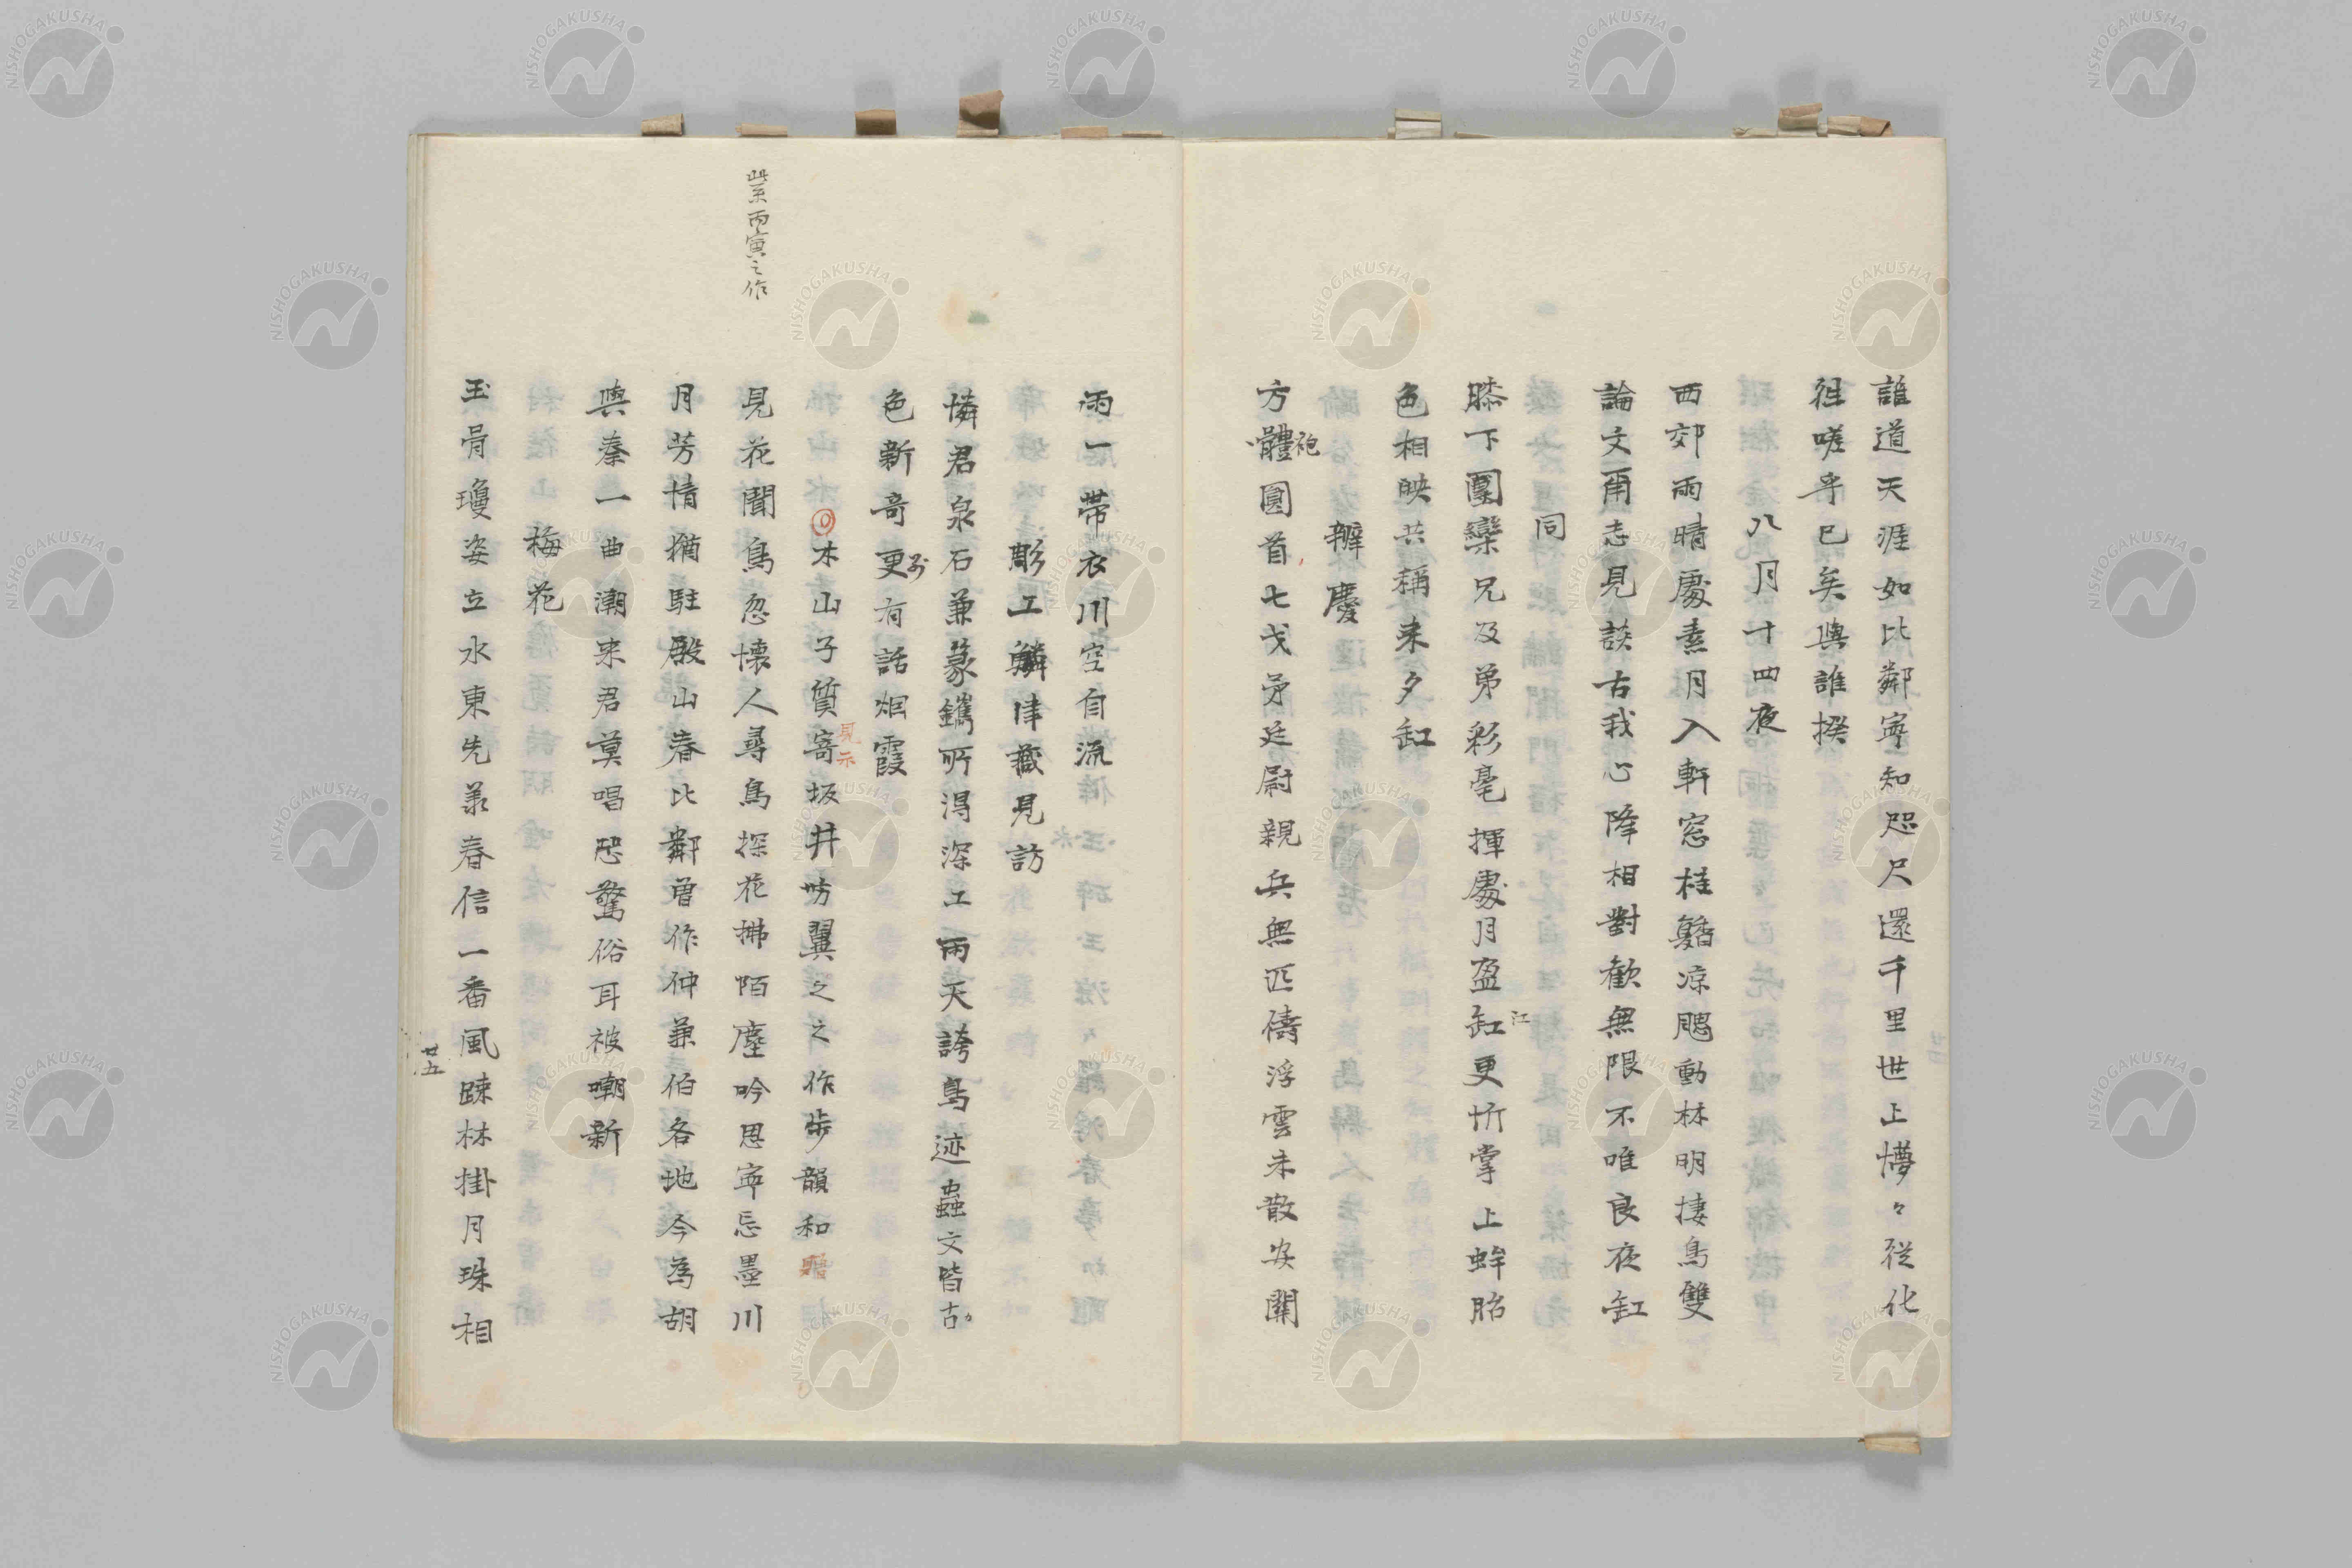 誰道天涯如比鄰寧知咫尺還千里世上懜々從化
徃嗟乎已矣與誰揆
八月十四夜
西郊雨晴處素月入軒窓桂䰂凉颸動林明棲鳥雙
論文甭志見談古我心降相對歓無限不唯良夜缸
同
膝下團欒兄及弟彩毫揮處月盈缸更忻掌上蚌胎
江
色相映共稱来夕缸
辧慶
方體圓首七戈矛廷尉親兵無匹儔浮雲未散安關
袍
雨一帶衣川空自流
彫工鱗津巌見訪
憐君泉石兼篆鐫所淂深工雨天誇鳥迹蟲文皆古
色新竒更有話烟霞
別
木山子質寄坂井坊翼之之作歩韻和
見示
見花聞鳥忽懐人尋鳥探花拂陌塵吟思寧忘墨川
月芳情猶駐殿山春比鄰曽作仲兼伯各地今為胡
與秦一曲潮来君莫唱恐驚俗耳被嘲新
梅花
玉骨瓊姿立水東先羕春信一番風踈林掛月珠相
柴丙寅之作
廿五
NISHOGAKUSHA